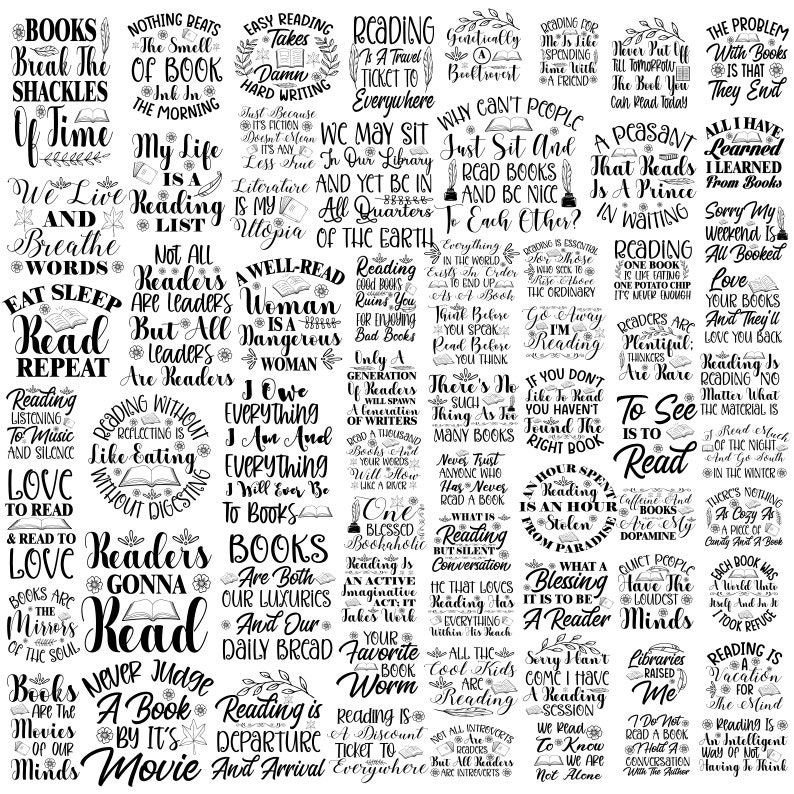 BOOKS
Break The
SHACKLES
Of Time
NOTHING BEATS
The Smell
OF BOOK
Ink In
THE MORNING
EASY READING
Takes
Damn
HARD WRITING
READING
Is A Travel
TICKET TO
Everywhere
Genetically
A
Booktrovert
READING FOR
Me Is Like
SPENDING
Time With
A FRIEND
Never Put Off
Till TOMORROW
The Book You
Can Read Today
THE PROBLEM
With Books
IS THAT
They End
We Live
AND
Breathe
WORDS
My Life
IS A
Reading
LIST
Just Because
IT'S FICTION
Doesn't Mean
IT'S ANY
Less True
Literature
IS MY
Utopia
WE MAY SIT
In Our Library
AND YET BE IN
All Quarters
OF THE EARTH
WHY CAN'T PEOPLE
Just Sit And
READ BOOKS
AND BE NICE
To Each Other?
A PEASANT
That Reads
Is A Prince
IN WAITING
ALL I HAVE
Learned
I LEARNED
From Books
Sorry My
WEEKEND IS
All Booked
EAT SLEEP
Read
REPEAT
NOT ALL
Readers
ARE LEADERS
But All
LEADERS
Are Readers
A WELL-READ
Woman
IS A
Dangerous
WOMAN
Reading
GOOD BOOKS
Ruins You
FOR ENJOYING
Bad Books
Everything
IN THE WORLD
Exists In Order
TO END UP
As A Book
Think Before
YOU SPEAK
Read Before
YOU THINK
READING IS ESSENTIAL
For Those
WHO SEEK TO
Rise Above
THE ORDINARY
Go Away
I'M
Reading
READING
ONE BOOK
IS LIKE EATING
ONE POTATO CHIP
IT'S NEVER ENOUGH
Love
YOUR BOOKS
And They'll
LOVE YOU BACK
READERS ARE
Plentiful;
THINKERS
Are Rare
Reading Is
READING NO
Matter What
THE MATERIAL IS
Reading
LISTENING
To Music
AND SILENCE
READING WITHOUT
REFLECTING IS
Like Eating
WITHOUT DIGESTING
I Owe
EVERYTHING
I Am And
EVERYTHING
I Will Ever Be
To Books
Only A
GENERATION
Of Readers
WILL SPAWN
A Generation
OF WRITERS
There's No
SUCH
Thing As Too
MANY BOOKS
IF YOU DON'T
Like To Read
YOU HAVEN'T
Found The
RIGHT BOOK
To See
IS TO
Read
I Read Much
OF THE NIGHT
And Go South
IN THE WINTER
LOVE
TO READ
& READ TO
LOVE
READ A THOUSAND
Books And
YOUR WORDS
Will Flow
LIKE A RIVER
Never Trust
ANYONE WHO
Has Never
READ A BOOK
AN HOUR SPENT
Reading
IS AN HOUR
Stolen
FROM PARADISE
Caffeine And
BOOKS
Are My
DOPAMINE
THERE'S NOTHING
As Cozy As
A PIECE OF
Candy And A Book
BOOKS ARE
THE
Mirrors
OF THE SOUL
Readers
GONNA
Read
BOOKS
Are Both
OUR LUXURIES
And Our
DAILY BREAD
One
BLESSED
Bookaholic
Reading Is
AN ACTIVE
Imaginative
ACT: IT
Takes Work
WHAT IS
Reading
BUT SILENT
Conversation
HE THAT LOVES
Reading Has
EVERYTHING
Within His Reach
WHAT A
Blessing
IT IS TO BE
A Reader
QUIET PEOPLE
Have The
LOUDEST
Minds
EACH BOOK WAS
A World Unto
Itself And In It
I TOOK REFUGE
Books
ARE THE
Movies
OF OUR
Minds
NEVER JUDGE
A Book
BY IT'S
Movie
Reading is
DEPARTURE
And Arrival
YOUR
Favorite
BOOK
Worm
READING IS
A Discount
TICKET TO
Everywhere
ALL THE
Cool Kids
ARE
Reading
NOT ALL INTROVERTS
Are
READERS
But All Readers
ARE INTROVERTS
Sorry I Can't
COME I HAVE
A Reading
SESSION
We Read
To Know
WE ARE
Not Alone
Libraries
RAISED
Me
I Do Not
READ A BOOK
I Hold A
CONVERSATION
With The Author
READING IS
A
Vacation
FOR
The Mind
Reading Is
An Intelligent
WAY OF NOT
Having To Think